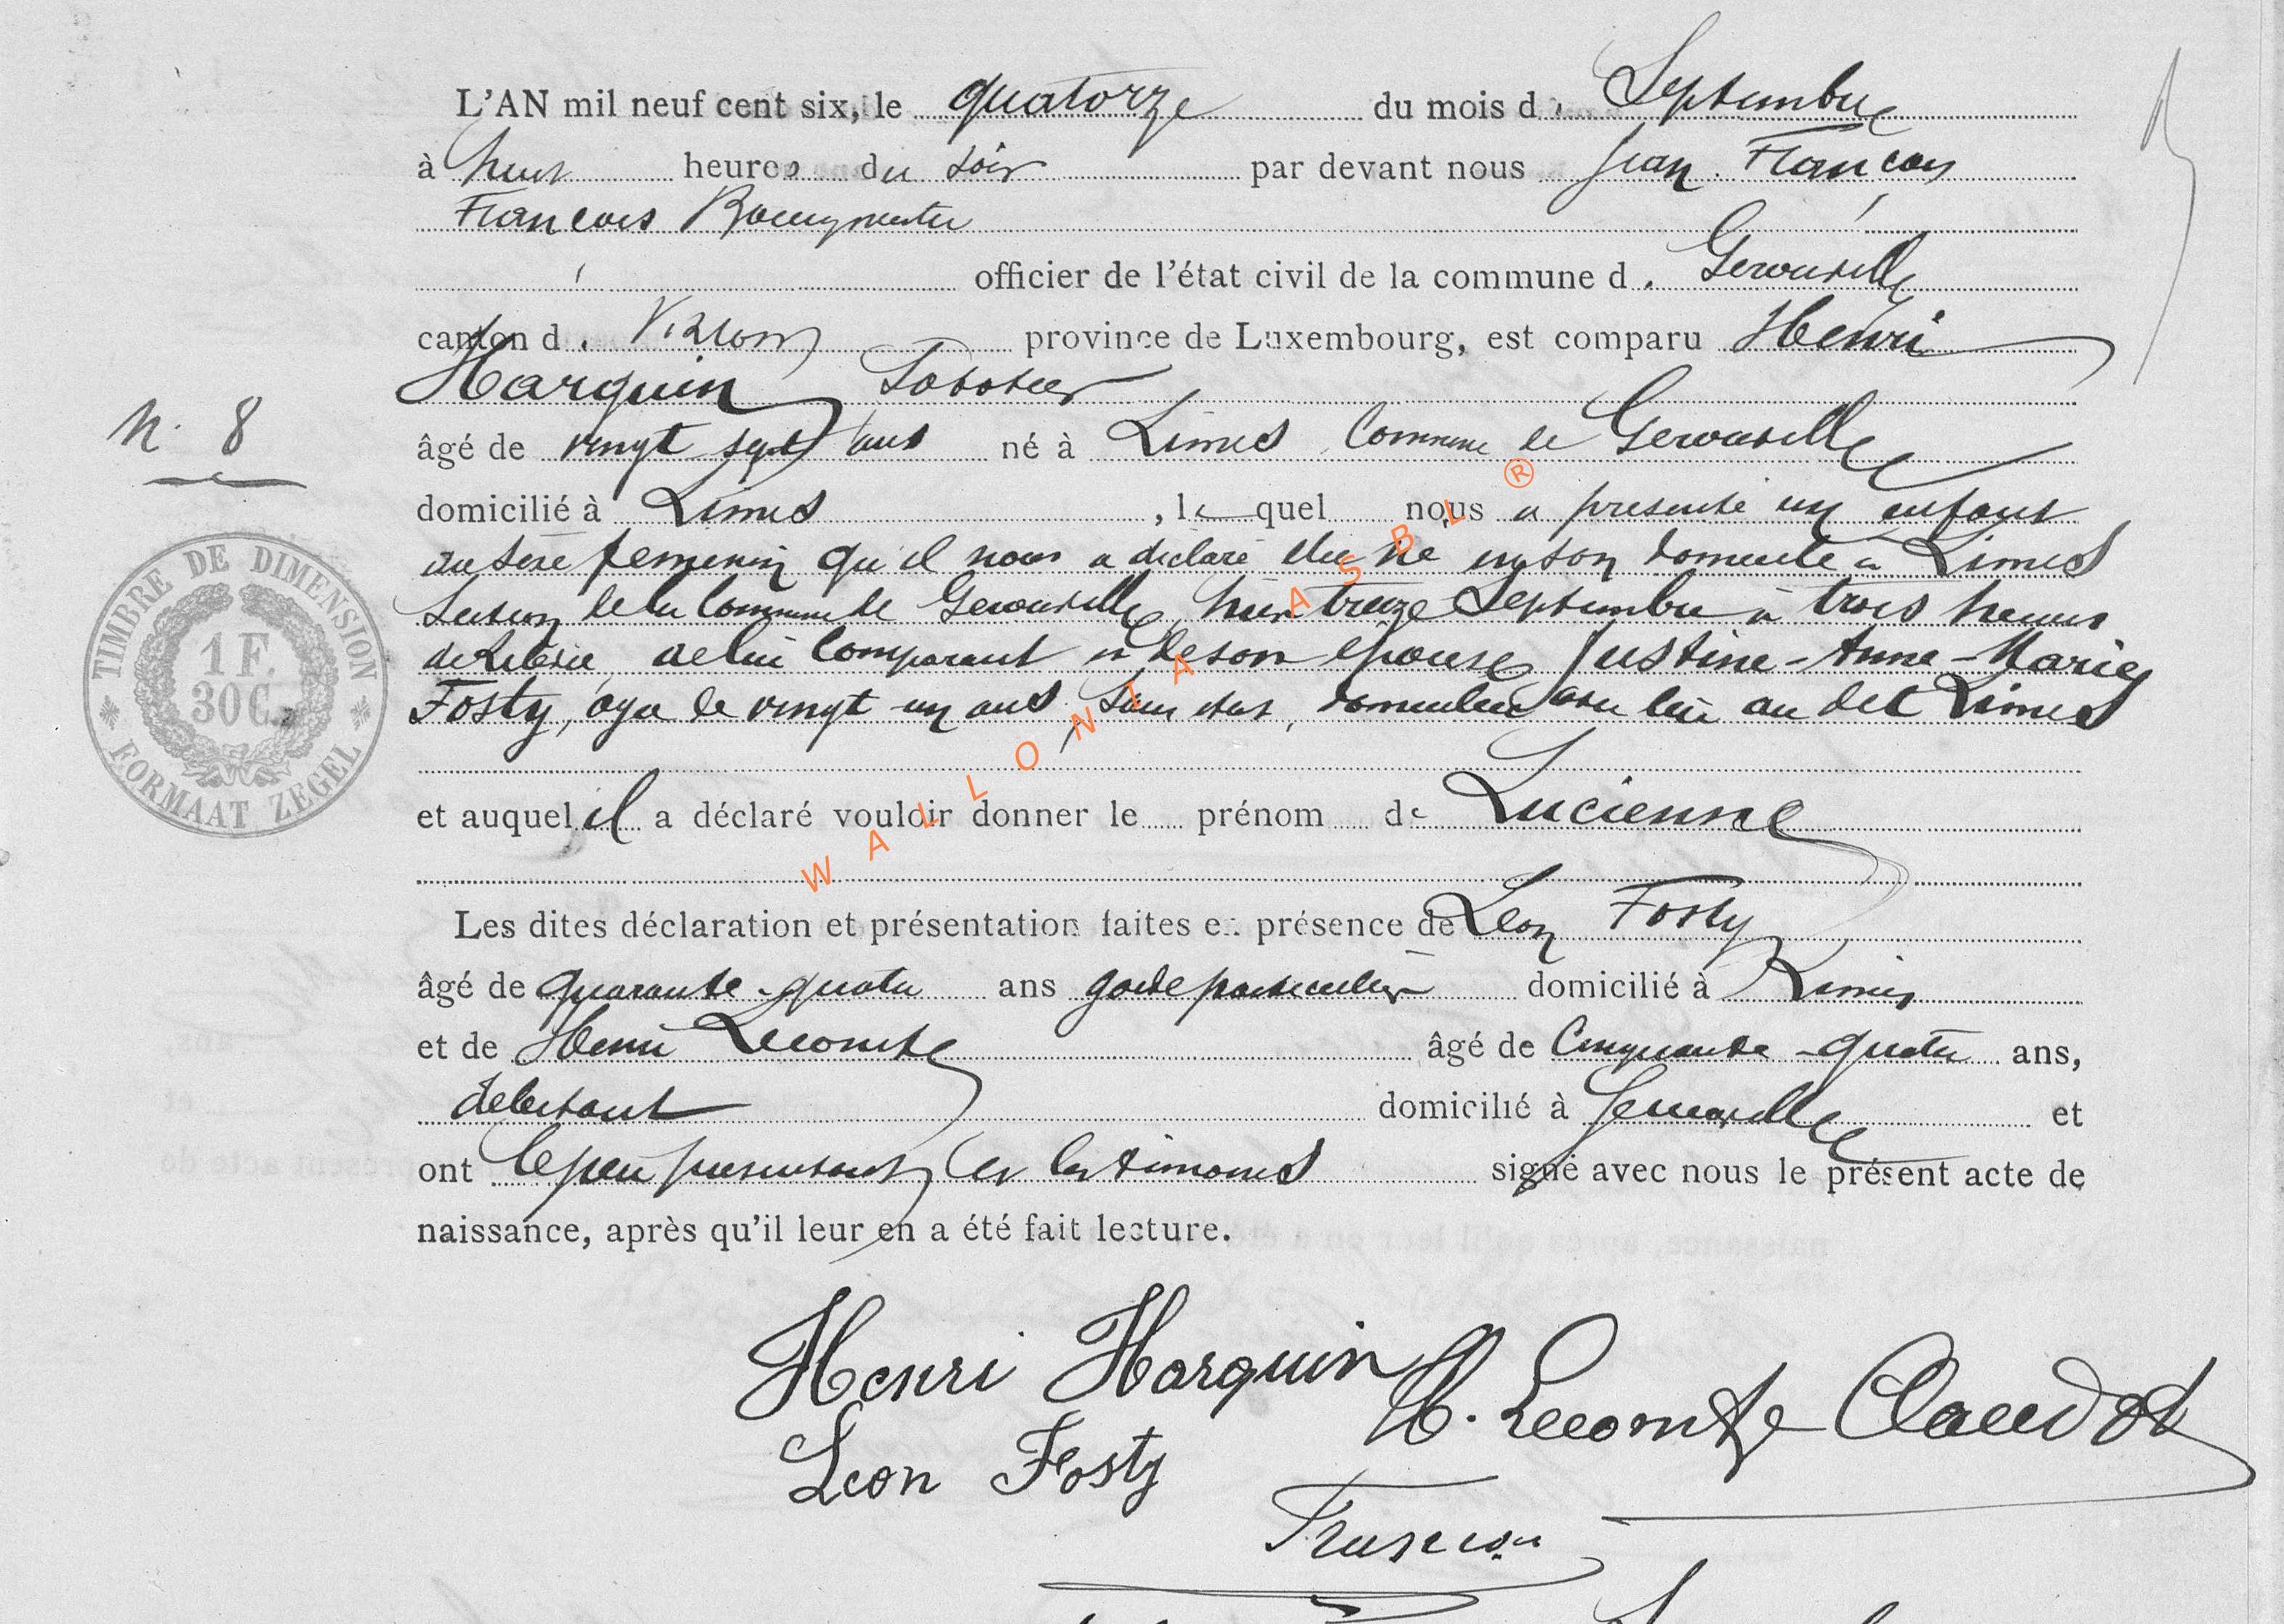 L'AN mil neuf cent six, le quatorze du mois d. Septembre
à huit heures du soir par devant nous Jean François
François Bourgmestre
officier de l'état civil de la commune d. Gerouville
canton d. Virton province de Luxembourg, est comparu Henri
Harquin Sabotier
N. 8
âgé de vingt sept ans né à Limes Commune de Gerouville
domicilié à Limes, le quel nous a presenté un enfant
du sexe femenin qu'il nous a déclaré être né en son domicile à Limes
Section de la Commune de Gerouville, hier treize Septembre à trois heures
de relevée, de lui Comparant et de son épouse Justine-Anne-Marie
Fosty, âgée de vingt un ans, sans état, domiciliée avec lui au dit Limes
et auquel il a déclaré vouloir donner le prénom de Lucienne
Les dites déclaration et présentation faites en présence de Leon Fosty
âgé de quarante-quatre ans garde particulier domicilié à Limes
et de Henri Lecomte âgé de Cinquante-quatre ans,
débitant domicilié à Gerouville et
ont le père présentant et les témoins signé avec nous le présent acte de
naissance, après qu'il leur en a été fait lecture.
Henri Harquin H. Lecomte Claudot
Leon Fosty
François
TIMBRE DE DIMENSION
1 F.
30 C.
FORMAAT ZEGEL
WALLONIA ASBL ®